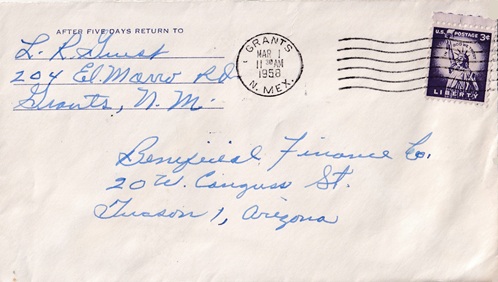 AFTER FIVE DAYS RETURN TO
L. R. Guest
204 El Morro Rd
Grants, N. M.
GRANTS
MAR 1
11 AM
1958
N. MEX.
U.S. POSTAGE 3¢
LIBERTY
Benificial Finance Co.
20 W. Congress St.
Tucson 1, Arizona